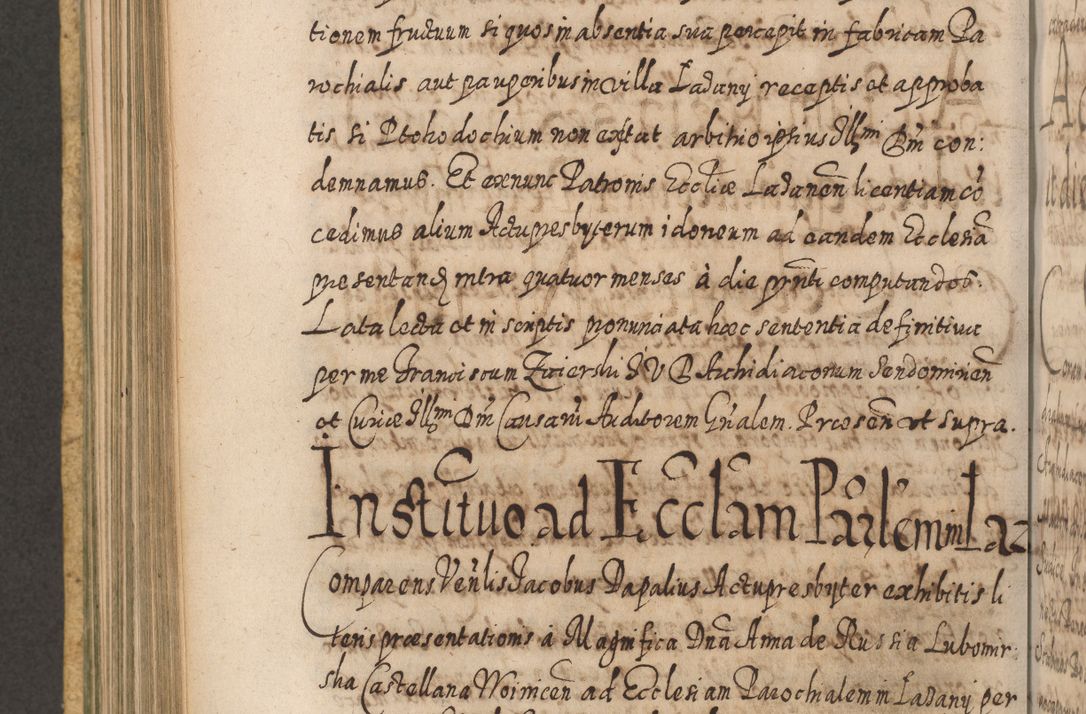 tionem fructuum si quos in absentia sua percepit in fabricam Pa
rochialis aut pauperibus in villa Ladany receptis et approba
tis si Ptohodochium non extat arbitrio ipsius Illmi Dni con:
demnamus. Et exnunc Patronis Eccliæ Ladanen licentiam cō
cedimus alium Actu presbyterum idoneum ad eandem Ecclesiā
presentandi intra quatuor menses à die pnti computandos.
Lata lecta et in scriptis pronunciata hæc sententia definitiva
per me Franciscum Zzierski I V D Archidiaconum Sendomirien
et Curiæ Illmi Dni Causarū Auditorem Gnalem. Præsen ut supra.
Institutio ad Ecclam Parlem in Laz
Comparens Venlis Jacobus Papalius Actu presbyter exhibitis li
teris præsentationis à Magnifica Dnā Anna de Russia Lubomir
ska Castellana Woinicen ad Ecclesiam Parochialem in Ladany per